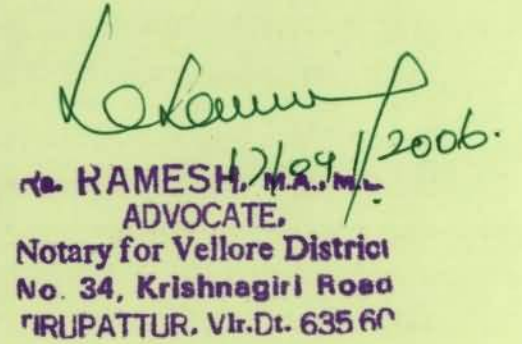 17/04/2006.
RAMESH, M.A., M.L.
ADVOCATE,
Notary for Vellore District
No. 34, Krishnagiri Road
TIRUPATTUR. Vlr.Dt. 635 60